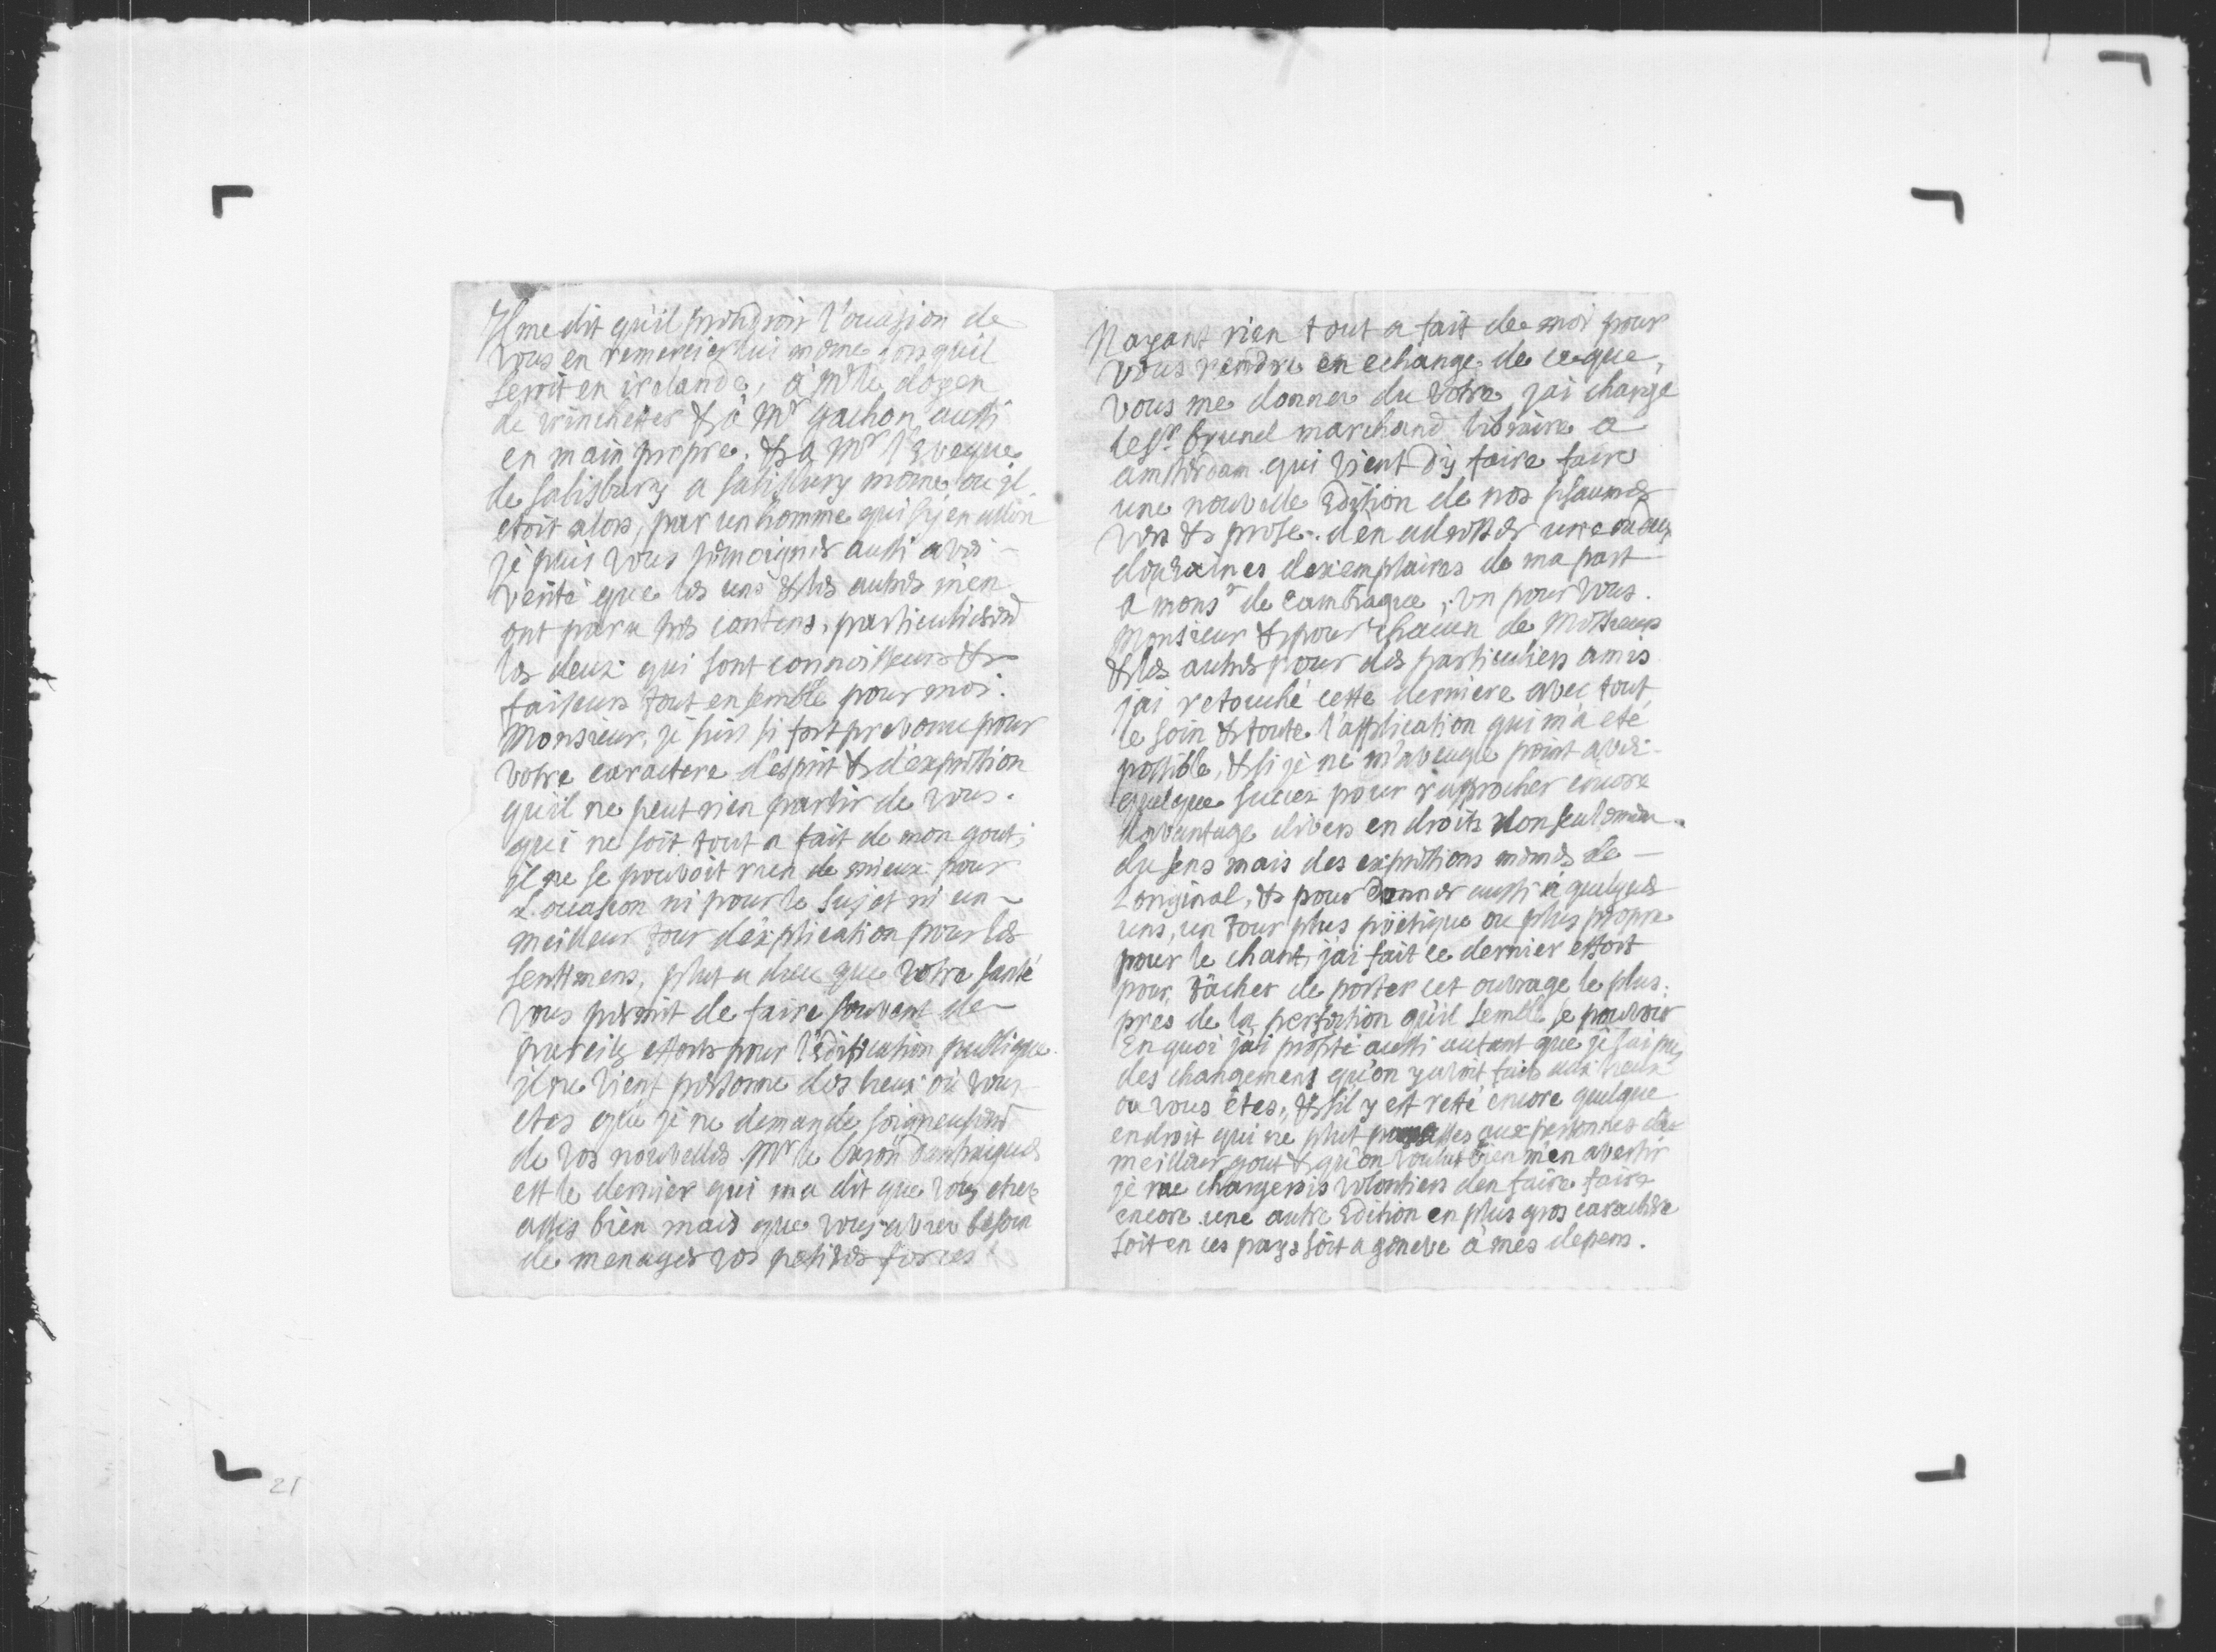 Il me dit qu'il prendroit l'ocasion de
vous en remercier lui mème lors qu'il
seroit en irelande, à Mr le doyen
de winchester & à Mr gachon aussi
en main propre. & a Mr l'Eveque
de salisbury a salisbury mème où il
étoit alors, par un homme qui
je puis vous témoigner aussi avec
verité que les uns & les autres m'en
ont paru tres contens, particulierem
les deux qui sont connoisseurs &
faiseurs tout ensemble pour moi.
Monsieur, je suis si fort prevenu pour
votre caractere d'esprit & d'expression
qu'il ne peut rien partir de vous.
qui ne soit tout a fait de mon gout;
il ne se pouvoit rien de mieux pour
L'ocasion ni pour le sujet ni un
meilleur tour d'explication pour les
sentimens, plut a dieu que votre santé
vous permit de faire souvent de
pareils efforts pour l'édification publique.
il ne vient personne des lieux où vous
etes que je ne demande soigneusem
de vos nouvelles. Mr le baron
est le dernier qui ma dit que vous etiez
assés bien mais que vous aviez besoin
de menager vos petites forces
N'ayant rien tout a fait de moi pour
vous rendre en echange de ce que,
vous me donnez du votre, jai chargé
le Sr. brunel marchand libraire a
amsterdam qui vient d'y faire faire
une nouvelle Edition de nos pseaumes
vers & prose. d'en adresser une ou deux
douzaines dexemplaires de ma part
a monsr de Cambiague, un pour vous.
Monsieur & pour chacun de Messieurs
& les autres pour des particuliers amis
jai retouché cette derniere avec tout
le soin & toute l'application qui m'a eté
possible, & si je ne m'aveugle point avec
quelque succez pour raprocher encore
davantage divers endroits non seulemen
du sens mais des expressions mèmes de
L'original, & pour donner aussi à quelques
uns, un tour plus poëtique ou plus propre
pour le chant, jai fait ce dernier effort
pour tâcher de porter cet ouvrage le plus
pres de la perfection qu'il semble se pouvoir
En quoi jai profité aussi autant que je l'ai pu
des changemens qu'on y avoit faits aux lieux
ou vous êtes, & s'il y est resté encore quelque
endroit qui ne plut pas aux personnes de
meilleur gout & qu'on voulut bien m'en avertir
je me chargerois volontiers d'en faire faire
encore une autre Edition en plus gros caractère
soit en ces pays soit a geneve à mes depens.
21